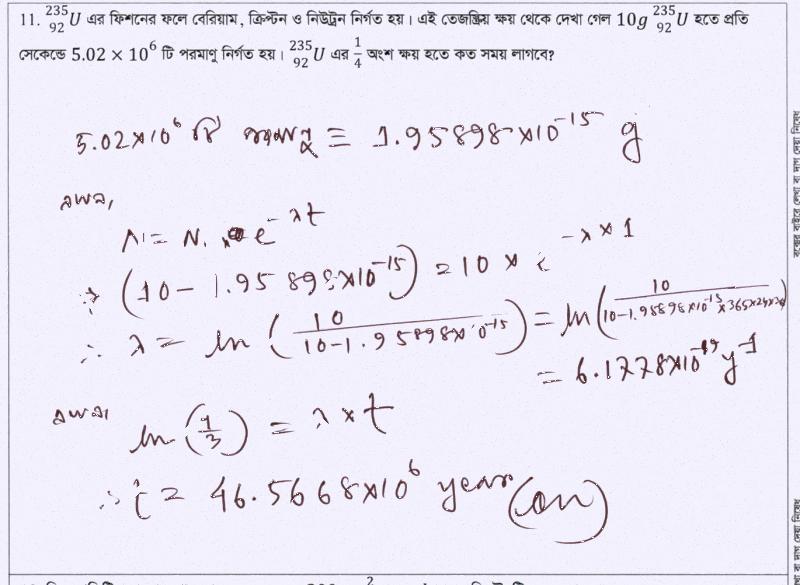 11. ²³⁵₉₂U এর ফিশনের ফলে বেরিয়াম, ক্রিপ্টন ও নিউট্রন নির্গত হয়। এই তেজস্ক্রিয় ক্ষয় থেকে দেখা গেল 10g ²³⁵₉₂U হতে প্রতি
সেকেন্ডে 5.02 × 10⁶ টি পরমাণু নির্গত হয়। ²³⁵₉₂U এর 1/4 অংশ ক্ষয় হতে কত সময় লাগবে?
5.02×10⁶ টি পরমাণু = 1.95898×10⁻¹⁵ g
আবার,
N = N₀ e^-λt
(10 - 1.95898×10⁻¹⁵) = 10 × e^-λ×1
∴ λ = ln (10 / 10-1.95898×10⁻¹⁵) = ln (10 / 10-1.95898×10⁻¹⁵×365×24×
= 6.1778×10 y⁻¹
আবার,
ln (4/3) = λ×t
∴ t = 46.5668×10⁶ year (Ans)
বক্সের বাইরে লেখা বা দাগ দেয়া নিষেধ
বা দাগ দেয়া নিষেধ